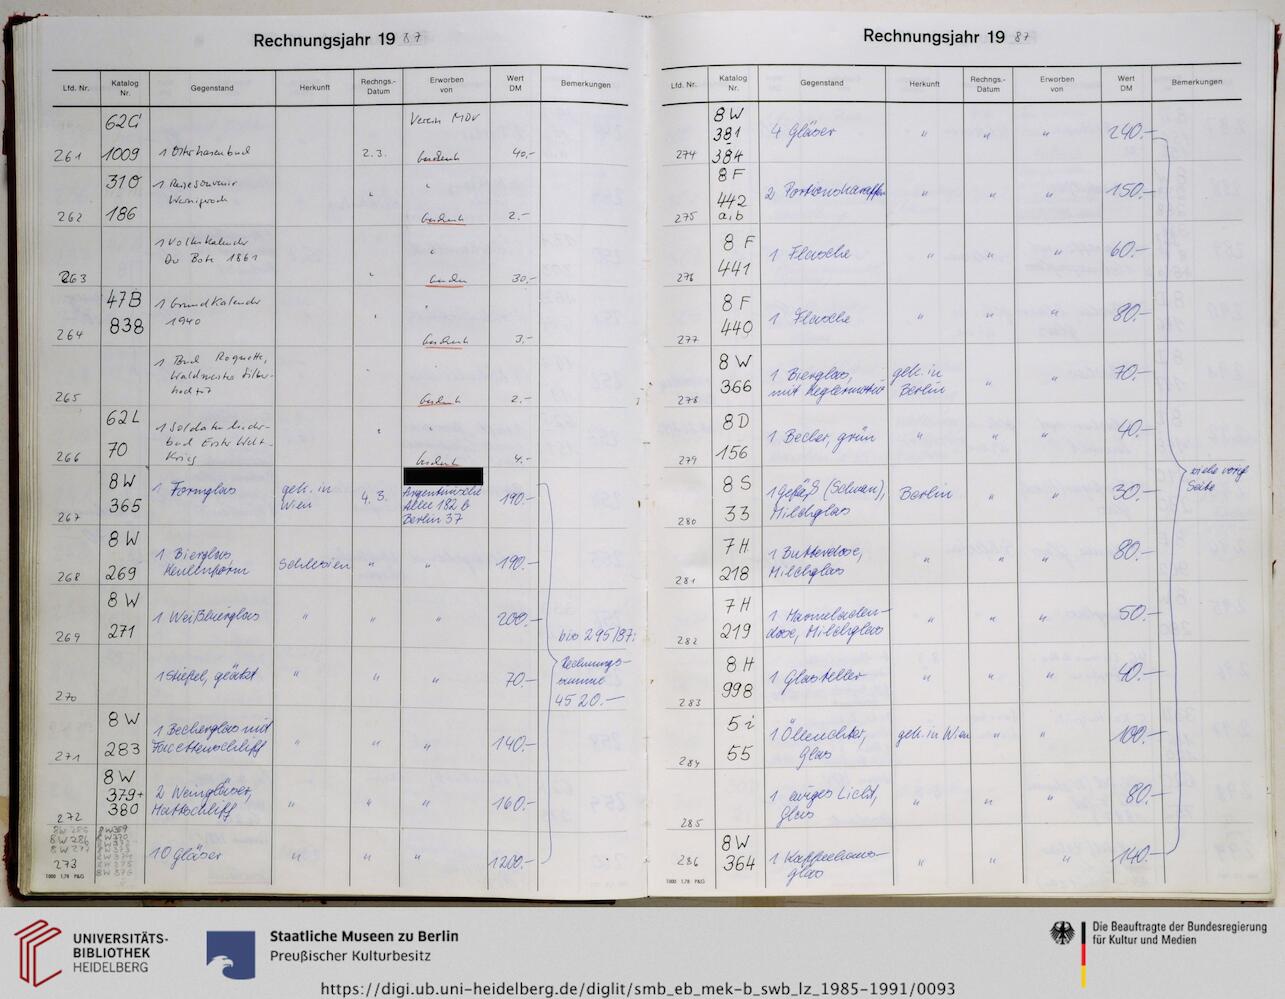 Rechnungsjahr 19 87
Lfd. Nr. Katalog Nr. Gegenstand Herkunft Rechngs.-Datum Erworben von Wert DM Bemerkungen
62G Verein MDV
261 1009 1 Osterhasenbuch 2.3. Geschenk 40,-
310 1 Reisesouvenir " "
Wernigerode
262 186 Geschenk 2.-
1 Volkskalender
Der Bote 1861 " "
263 Geschenk 30,-
47B 1 Grundkalender "
264 838 1940 " Geschenk 3,-
1 Buch Roquette,
Waldmeisters Silber-
265 hochzeit Geschenk 2.-
62L 1 Soldatenlieder- " "
70 buch Erster Welt-
266 Krieg Geschenk 4.-
8W 1 Formglas gek. in 4.3. Argentinische 190.-
365 Wien Allee 182 b
267 Berlin 37
8W 1 Bierglas, Schlesien " " 190.-
268 269 Keulenform
8W 1 Weißbierglas " " " 200.-
269 271
bis 295/87:
1 Stiefel, geätzt " " " 70.- Rechnungs-
summe
270 4520.-
8W 1 Becherglas mit " " " 140.-
271 283 Facettenschliff
8W 2 Weingläser, " " " 160.-
379+ Mattschliff
272 380
8W 286
273 10 Gläser " " " 1200.-
8W 376
1000 1.78 P&G
Rechnungsjahr 19 87
Lfd. Nr. Katalog Nr. Gegenstand Herkunft Rechngs.-Datum Erworben von Wert DM Bemerkungen
8W 4 Gläser " " " 240.-
381
274 384
8F 2 Portionskaraffen " " " 150.-
442
275 a,b
8F 1 Flasche " " " 60.-
276 441
8F 1 Flasche " " " 80.-
277 440
8W 1 Bierglas, gek. in " " 70.-
278 366 mit Keglermotiv Berlin
8D 1 Becher, grün " " " 40.-
279 156
siehe vorige
Seite
8S 1 Gefäß (Schwan), Berlin " " 30.-
280 33 Milchglas
7H 1 Butterdose, " " " 80.-
281 218 Milchglas
7H 1 Marmeladen- " " " 50.-
282 219 dose, Milchglas
8H 1 Glasteller " " " 40.-
283 998
5i 1 Ölleuchter, gek. in Wien " " 100.-
284 55 Glas
1 ewiges Licht, " " " 80.-
285 Glas
8W 1 Kaffeehaus- " " " 140.-
286 364 glas
1000 1.78 P&G
UNIVERSITÄTS-
BIBLIOTHEK
HEIDELBERG
Staatliche Museen zu Berlin
Preußischer Kulturbesitz
Die Beauftragte der Bundesregierung
für Kultur und Medien
https://digi.ub.uni-heidelberg.de/diglit/smb_eb_mek-b_swb_lz_1985-1991/0093